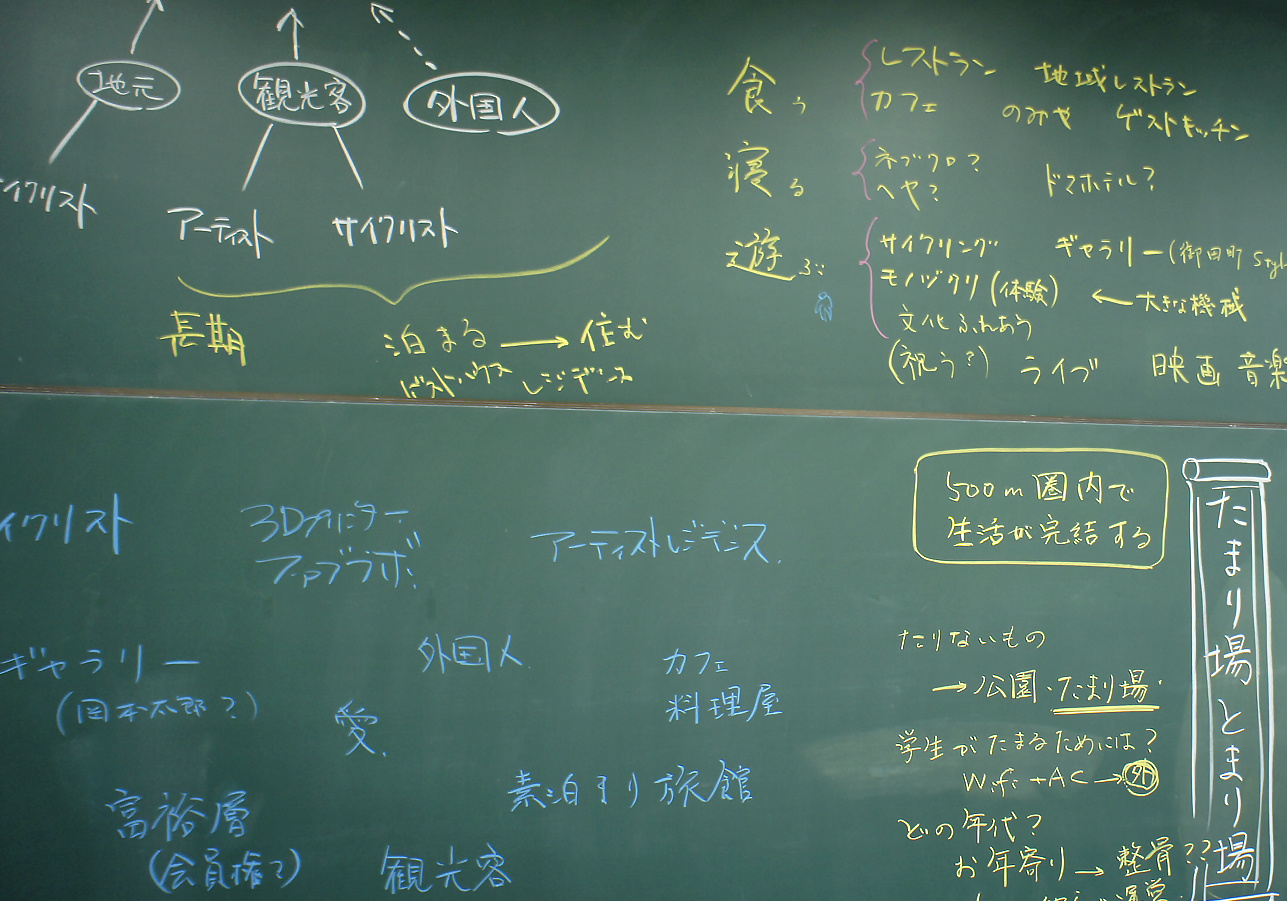 地元
観光客
外国人
サイクリスト
アーティスト
サイクリスト
長期
泊まる → 住む
ゲストハウス レジデンス
食う
レストラン 地域レストラン
カフェ のみや ゲストキッチン
寝る
ネブクロ?
ヘヤ? ドマホテル?
遊ぶ
サイクリング ギャラリー(御田町 Style
モノヅクリ(体験) ← 大きな機械
文化ふれあう
(祝う?) ライブ 映画 音楽
イクリスト
3Dプリンター
ファブラボ.
アーティストレジデンス.
ギャラリー
(岡本太郎?)
外国人.
愛.
カフェ
料理屋
素泊まり旅館
富裕層
(会員権?)
観光客
500m圏内で
生活が完結する
たりないもの
→公園・たまり場.
学生がたまるためには?
Wifi+AC→外
どの年代?
お年寄り→整骨??
運営.
たまり場とまり場